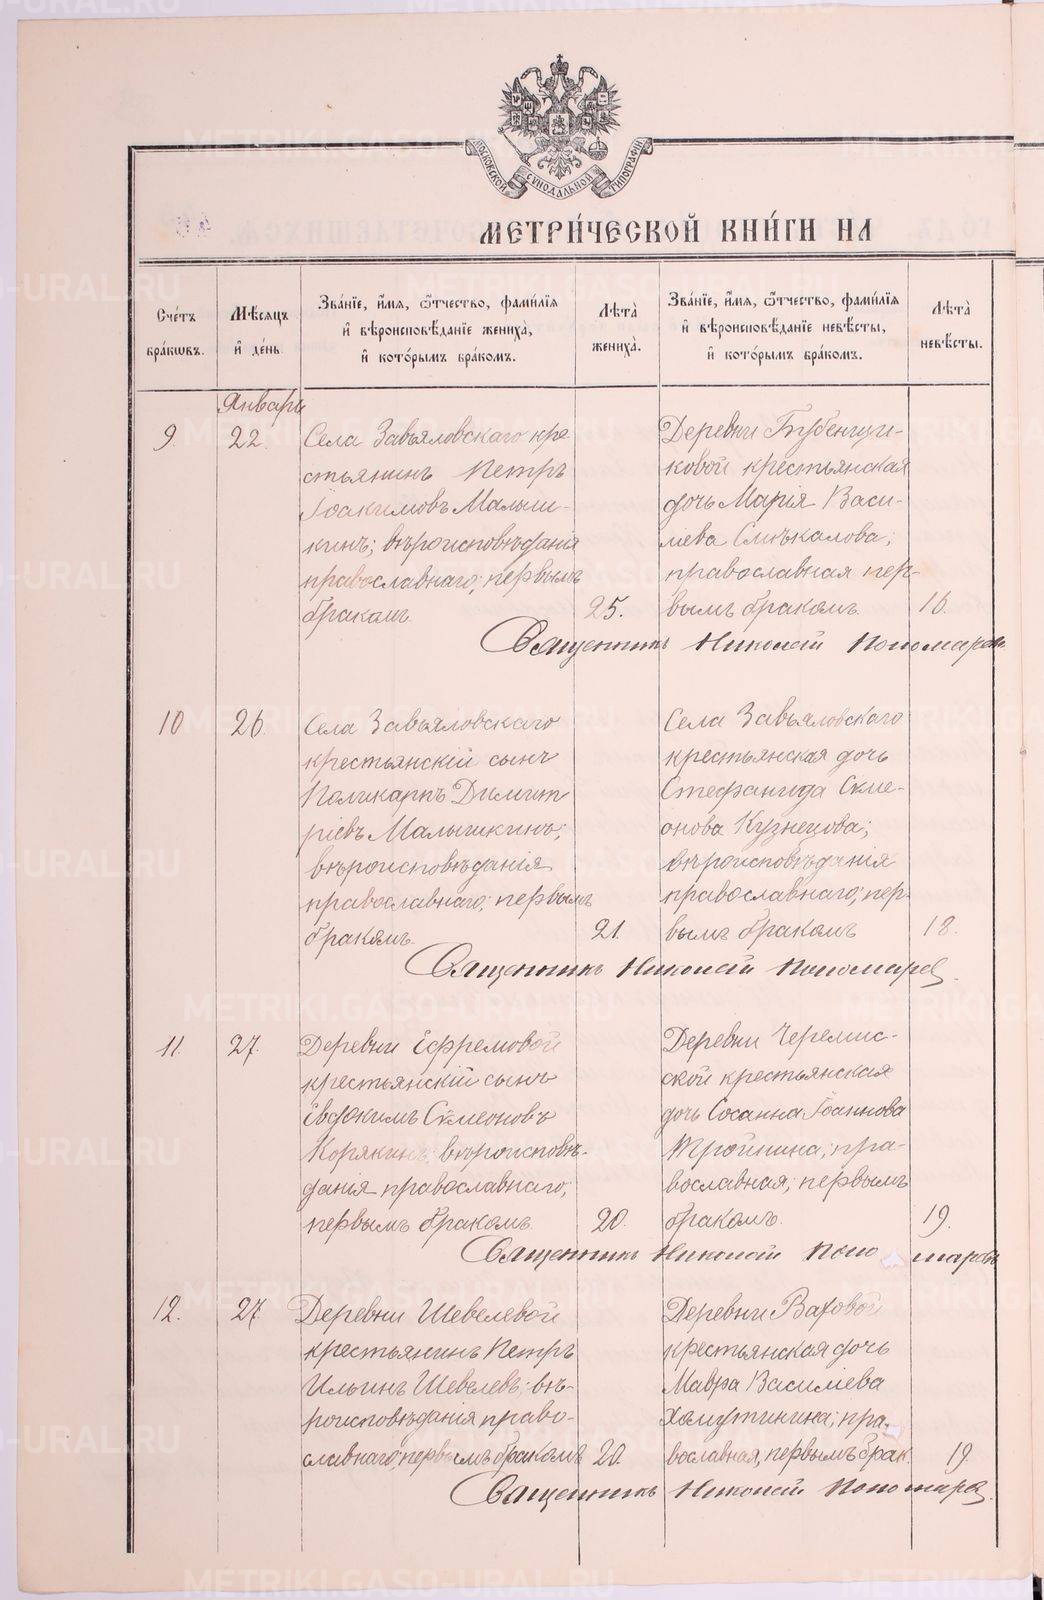 МОСКОВСКОЙ СѴНОДАЛЬНОЙ ТИПОГРАФІИ
МЕТРИ́ЧЕСКОЙ КНИ́ГИ НА
Сче́тъ бра́кωвъ.
Мѣ́сяцъ и҆ де́нь.
Зва́нїе, и҆́мя, ѻ҆́тчество, фами́лїя и҆ вѣроисповѣ́данїе жениха̀, и҆ кото́рымъ бра́комъ.
Лѣта̀ жениха̀.
Зва́нїе, и҆́мя, ѻ҆́тчество, фами́лїя и҆ вѣроисповѣ́данїе невѣ́сты, и҆ кото́рымъ бра́комъ.
Лѣта̀ невѣ́сты.
Январь
9. 22.
Села Завьяловскаго кре
стьянинъ Петръ
Іоакимовъ Малыш-
кинъ; вѣроисповѣданія
православнаго; первымъ
бракомъ. 25.
Деревни Бубенщи-
ковой крестьянская
дочь Марія Васи-
лiева Смѣкалова;
православная пер-
вымъ бракомъ. 16.
Священникъ Николай Пономаревъ
10 26.
Села Завьяловскаго
крестьянскій сынъ
Поликарпъ Димит
ріевъ Малышкинъ;
вѣроисповѣданія
православнаго; первымъ
бракомъ. 21.
Села Завьяловскаго
крестьянская дочь
Стефанида Симе-
онова Кузнецова;
вѣроисповѣданія
православнаго; пер-
вымъ бракомъ 18.
Священникъ Николай Пономаревъ.
11. 27.
Деревни Ефремовой
крестьянскій сынъ
Евдокимъ Симеоновъ
Корякинъ, вѣроисповѣ-
данія православнаго;
первымъ бракомъ. 20.
Деревни Черемис-
ской крестьянская
дочь Сосанна Іоаннова
Тройнина; пра-
вославная; первымъ
бракомъ. 19.
Священникъ Николай Пономаревъ
12. 27
Деревни Шевелевой
крестьянинъ Петръ
Ильинъ Шевелевъ; вѣ-
роисповѣданія право-
славнаго; первымъ бракомъ 20.
Деревни Ваховой
крестьянская дочь
Мавра Василіева
Хомутинина; пра-
вославная, первымъ брак. 19.
Священникъ Николай Пономаревъ.
METRIKI.GASO-URAL.RU